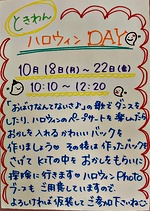 ときわん
ハロウィン DAY
10月18日(月)～22日(金)
10:10～12:20
「おばけなんてないさ♪」の曲でダンスを
したり、ハロウィンのペープサートを楽しんだら
おかしを入れる かわいいバックを
作りましょう その後は作ったバックを
さげて KITの中を おかしをもらいに
探険に行きます ハロウィン Photo
ブースも ご用意していますので、
よろしければ仮装して ご参加下さいね